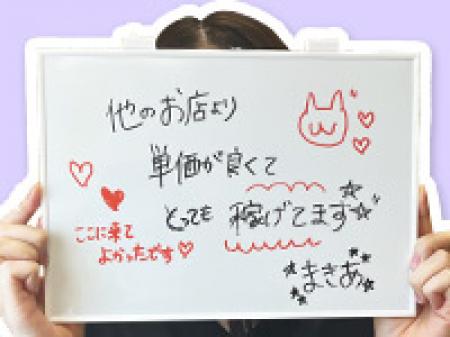 他のお店より
単価が良くて
とっても 稼げてます☆
ここに来て
よかったです♡
まきあ